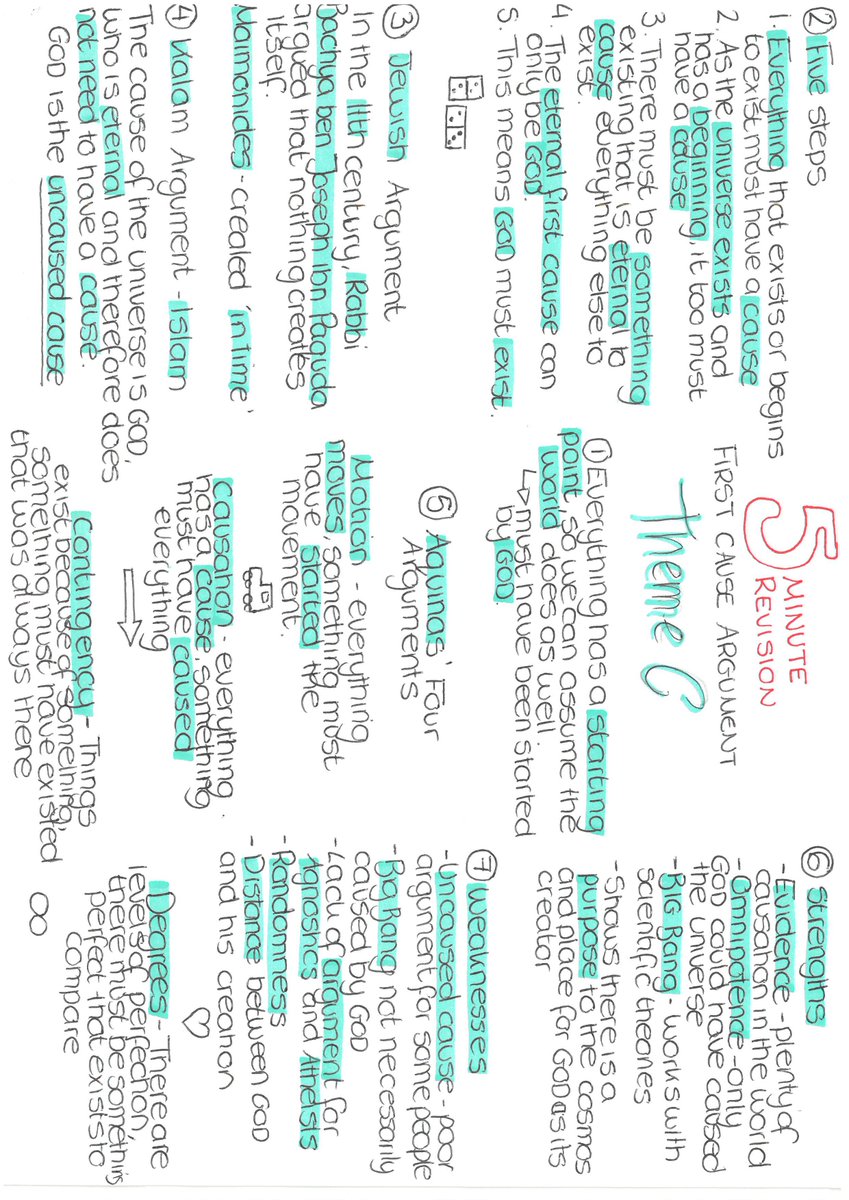 5 MINUTE
REVISION
FIRST CAUSE ARGUMENT
Theme C
① Everything has a starting
point, so we can assume the
world does as well.
↳ must have been started
by GOD.
② Five steps
1. Everything that exists or begins
to exist must have a cause
2. As the universe exists and
has a beginning, it too must
have a cause
3. There must be something
existing that is eternal to
cause everything else to
exist.
4. The eternal first cause can
only be GOD.
5. This means GOD must exist.
③ Jewish Argument
In the 11th century, Rabbi
Bachya ben Joseph Ibn Paguda
argued that nothing creates
itself.
Maimonides - created 'in time'
④ Kalam Argument - Islam
The cause of the universe is GOD,
who is eternal and therefore does
not need to have a cause.
GOD is the uncaused cause
⑤ Aquinas' Four
Arguments
Motion - everything
moves, something must
have started the
movement.
Causation - everything
has a cause, something
must have caused
everything
Contingency - Things
exist because of something,
something must have existed
that was always there
Degrees - There are
levels of perfection,
there must be something
perfect that exists to
compare
⑥ Strengths
- Evidence - plenty of
causation in the world
- Omnipotence - only
GOD could have caused
the universe
- Big Bang - works with
scientific theories
- Shows there is a
purpose to the cosmos
and place for GOD as its
creator
⑦ Weaknesses
- Uncaused cause - poor
argument for some people
- Big Bang not necessarily
caused by GOD
- Lack of argument for
Agnostics and Atheists
- Randomness
- Distance between GOD
and his creation